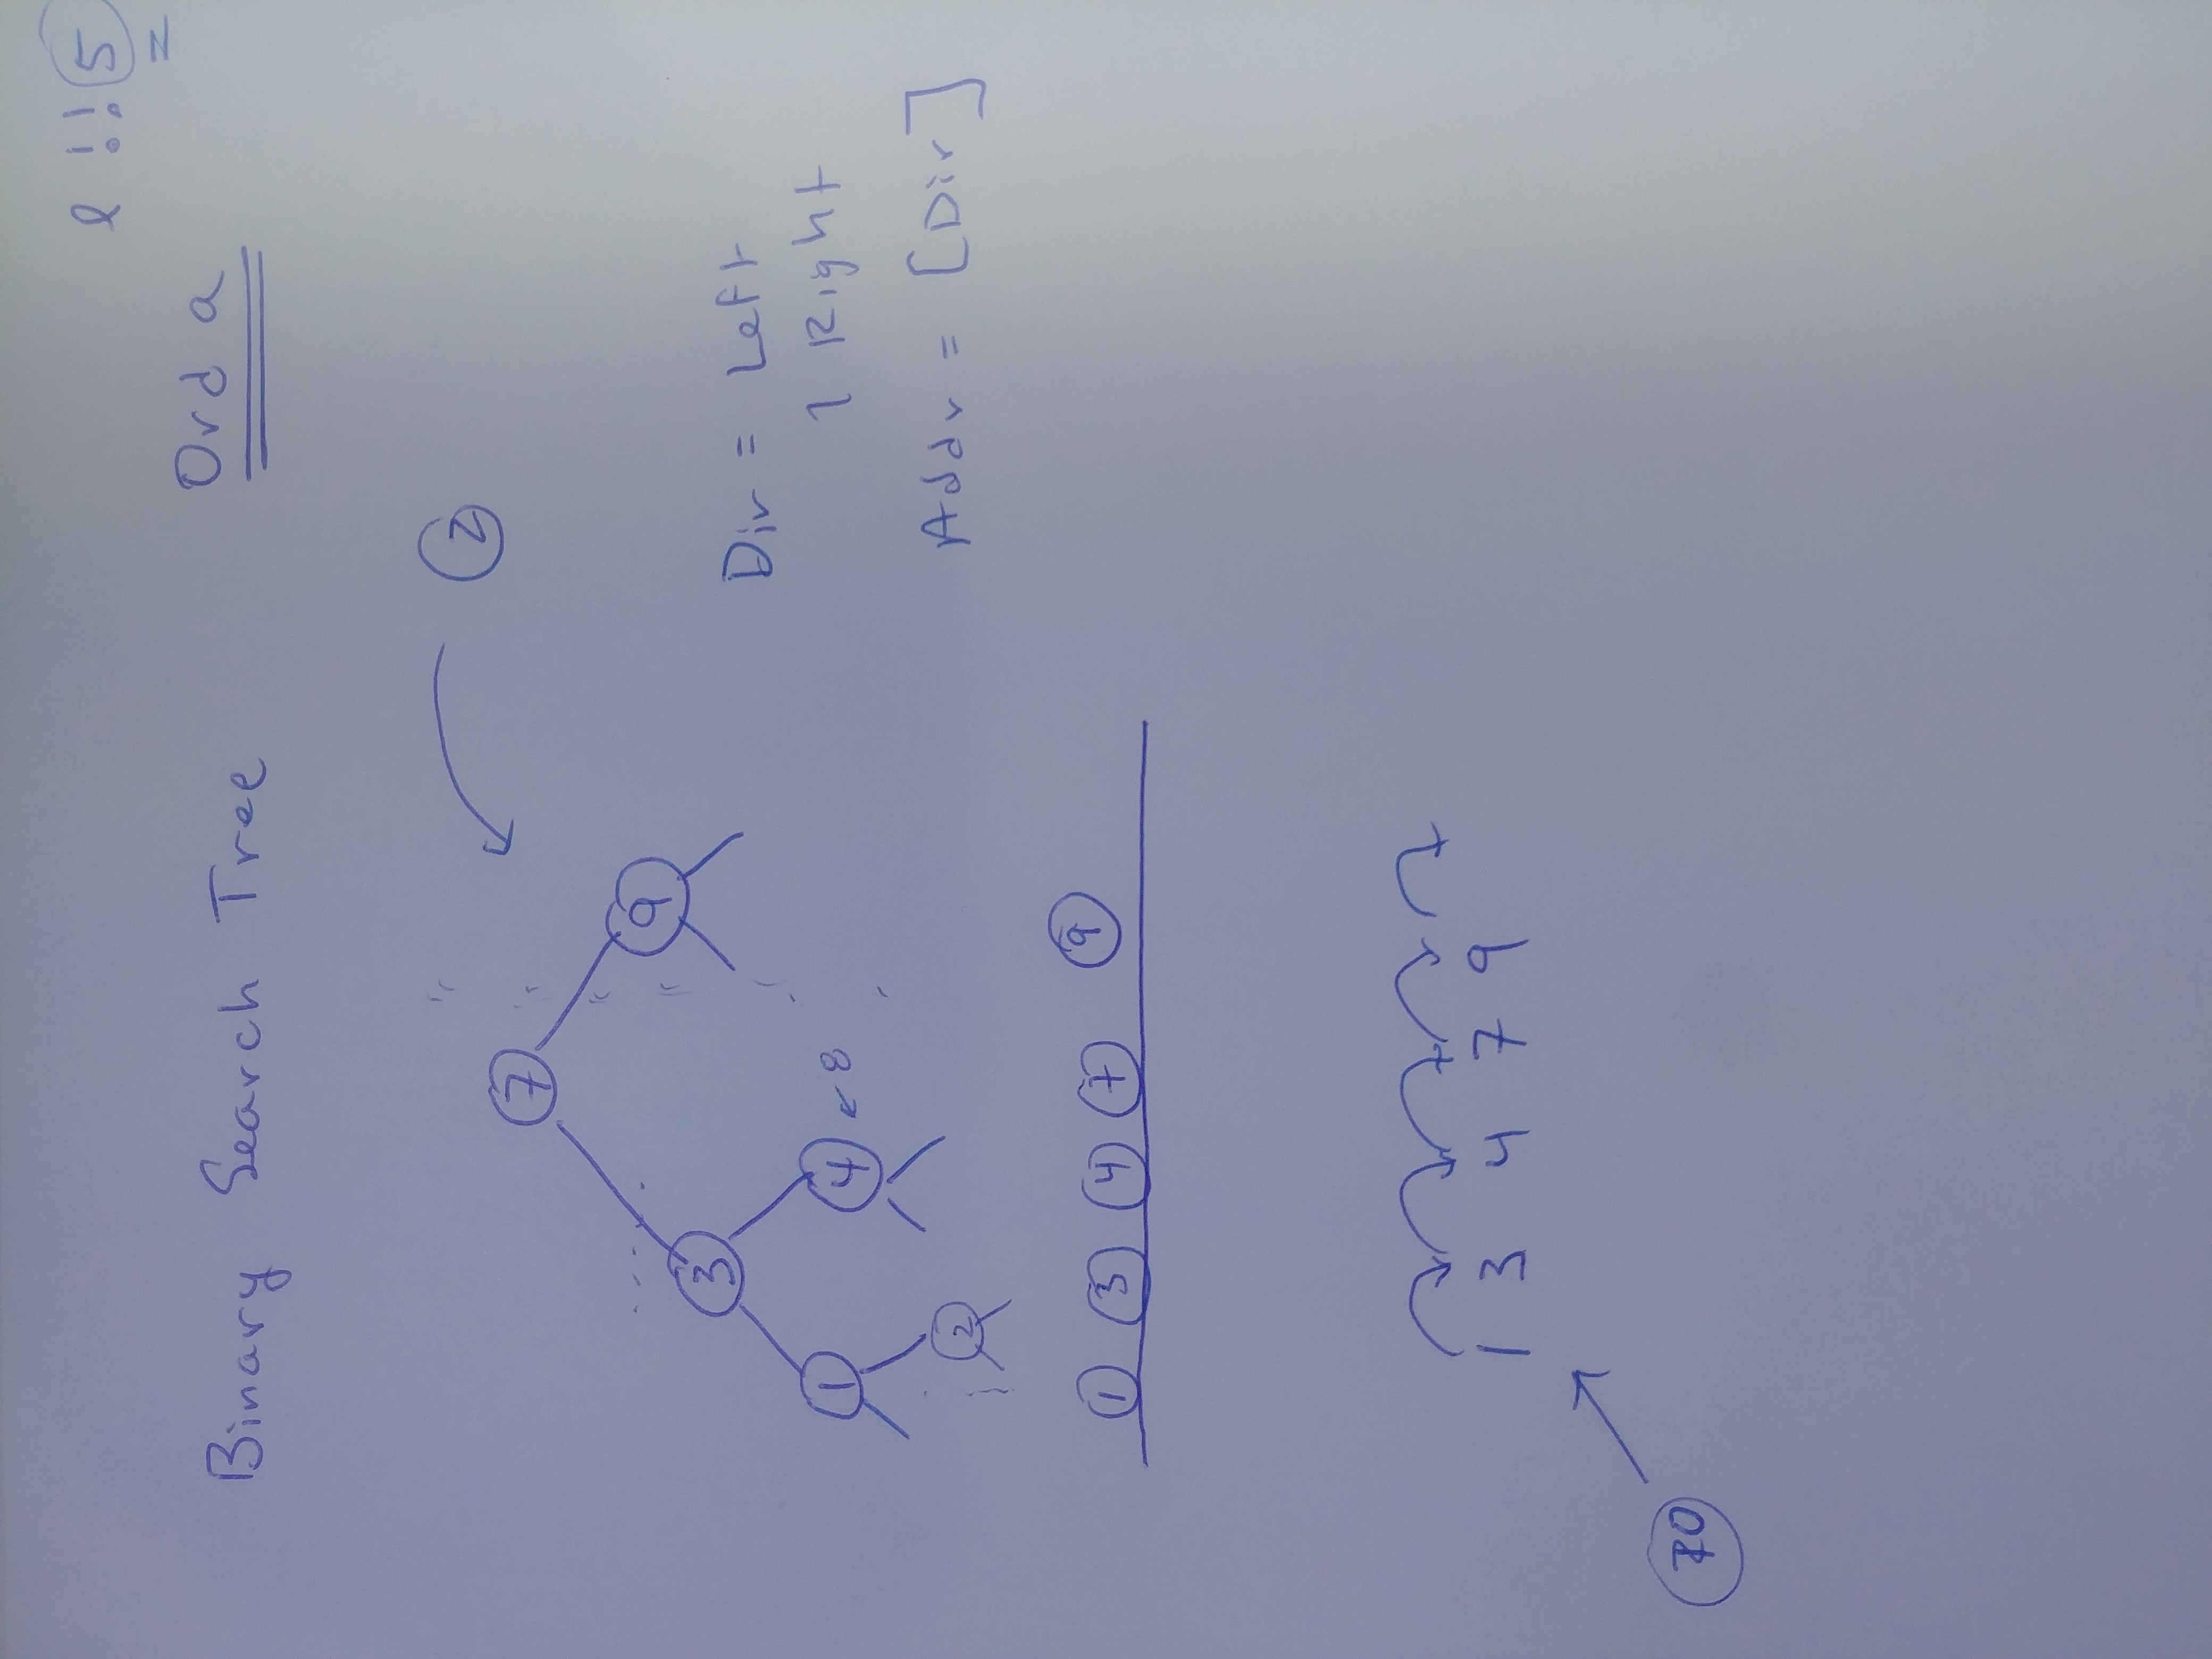 l !! 5
Binary Search Tree
Ord a
2
7
9
3
Dir = Left
| Right
1
4
8
Addr = [Dir]
2
1 3 4 7 9
1 3 4 7 9